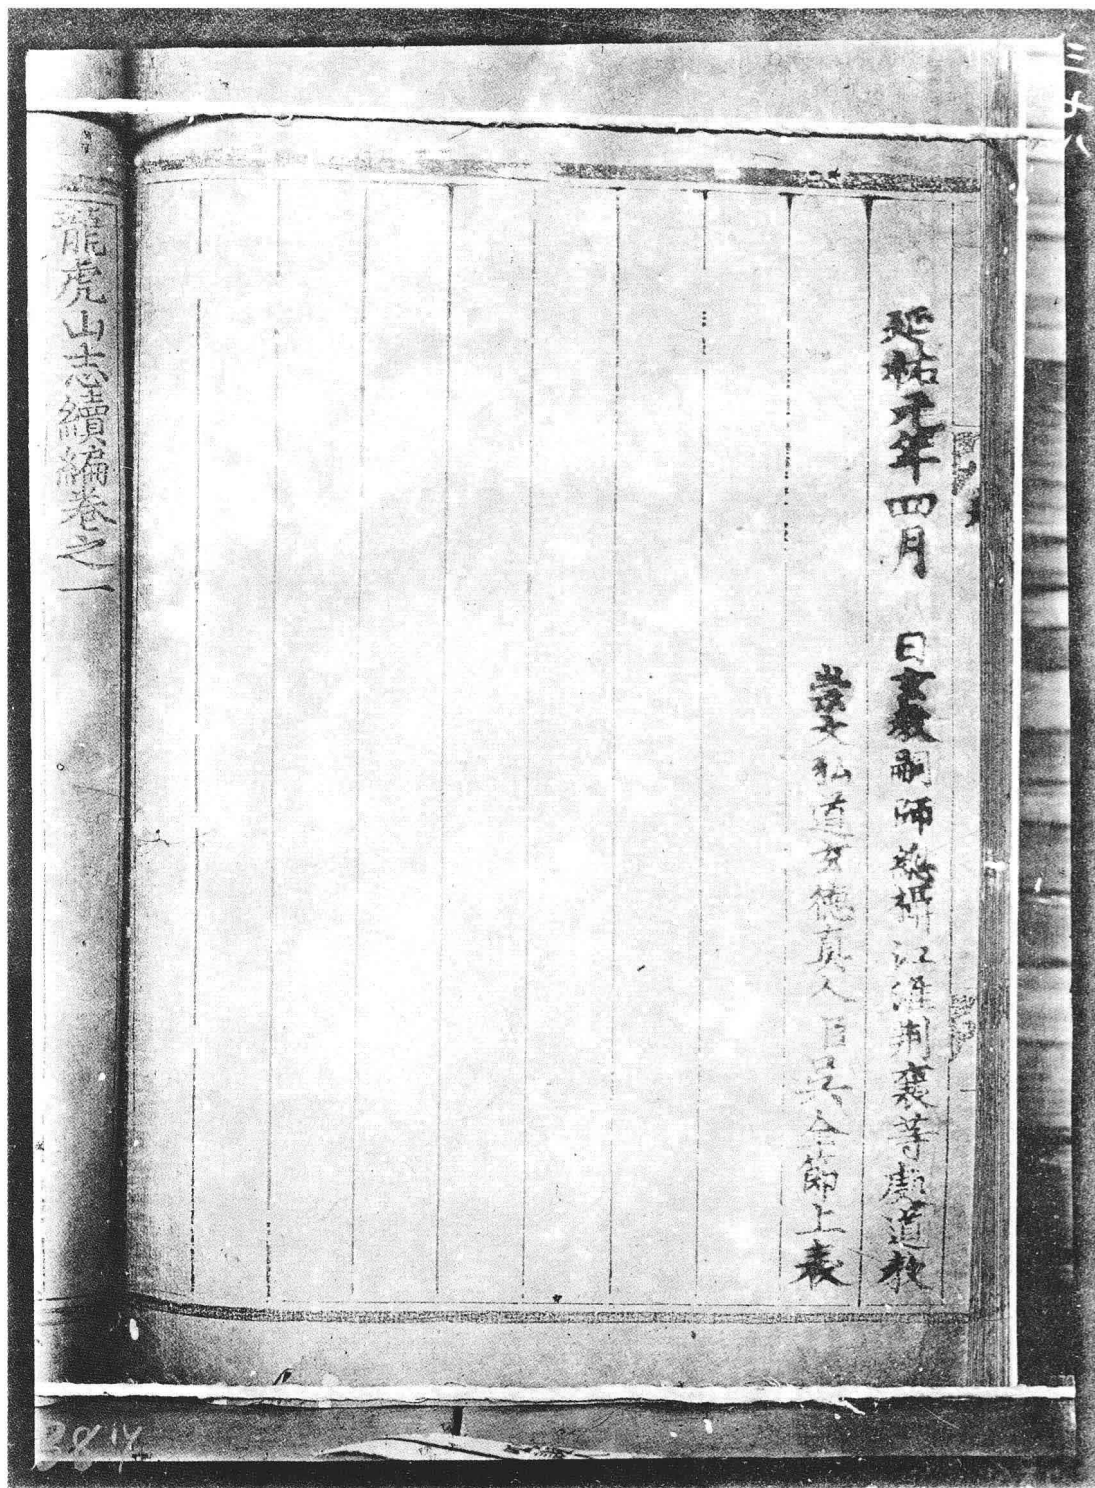 延祐元年四月 日玄教嗣師總攝江淮荆襄等處道教
崇文弘道玄德真人臣吳全節上表
龍虎山志續編卷之一
三十八